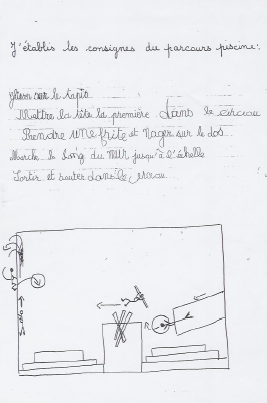 J'établis les consignes du parcours piscine:
glisser sur le tapis
Mettre la tête la première dans le cerceau
Prendre une frite et Nager sur le dos.
Marche le long du mur jusqu'à l'échelle
Sortir et sauter dans le cerceau